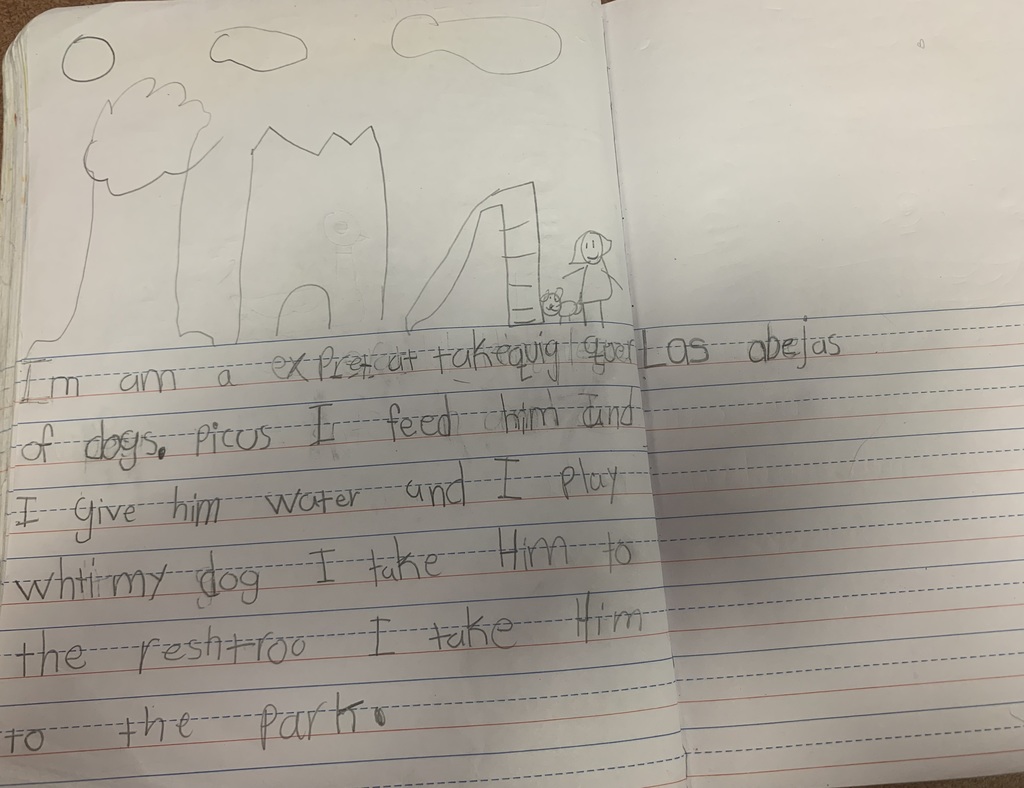 Im am a expretcat takequig goer
of dogs. picus I feed him and
I give him water and I play
whtirmy dog I take Him to
the reshtroo I take Him
to the park.
Las abejas